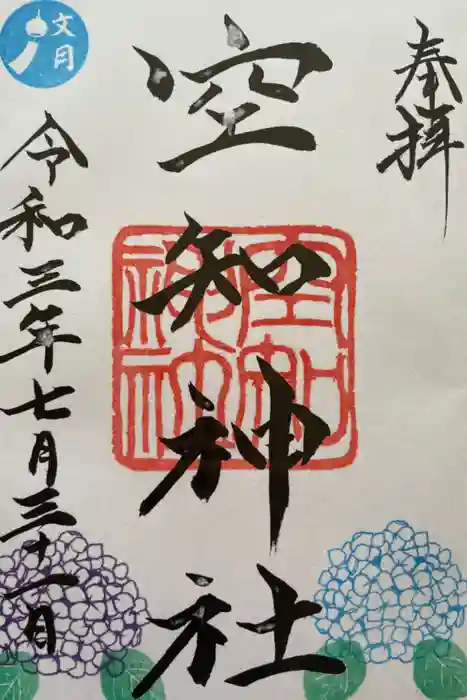 奉拝
空知神社
空知神社
令和三年七月三十一日
文月